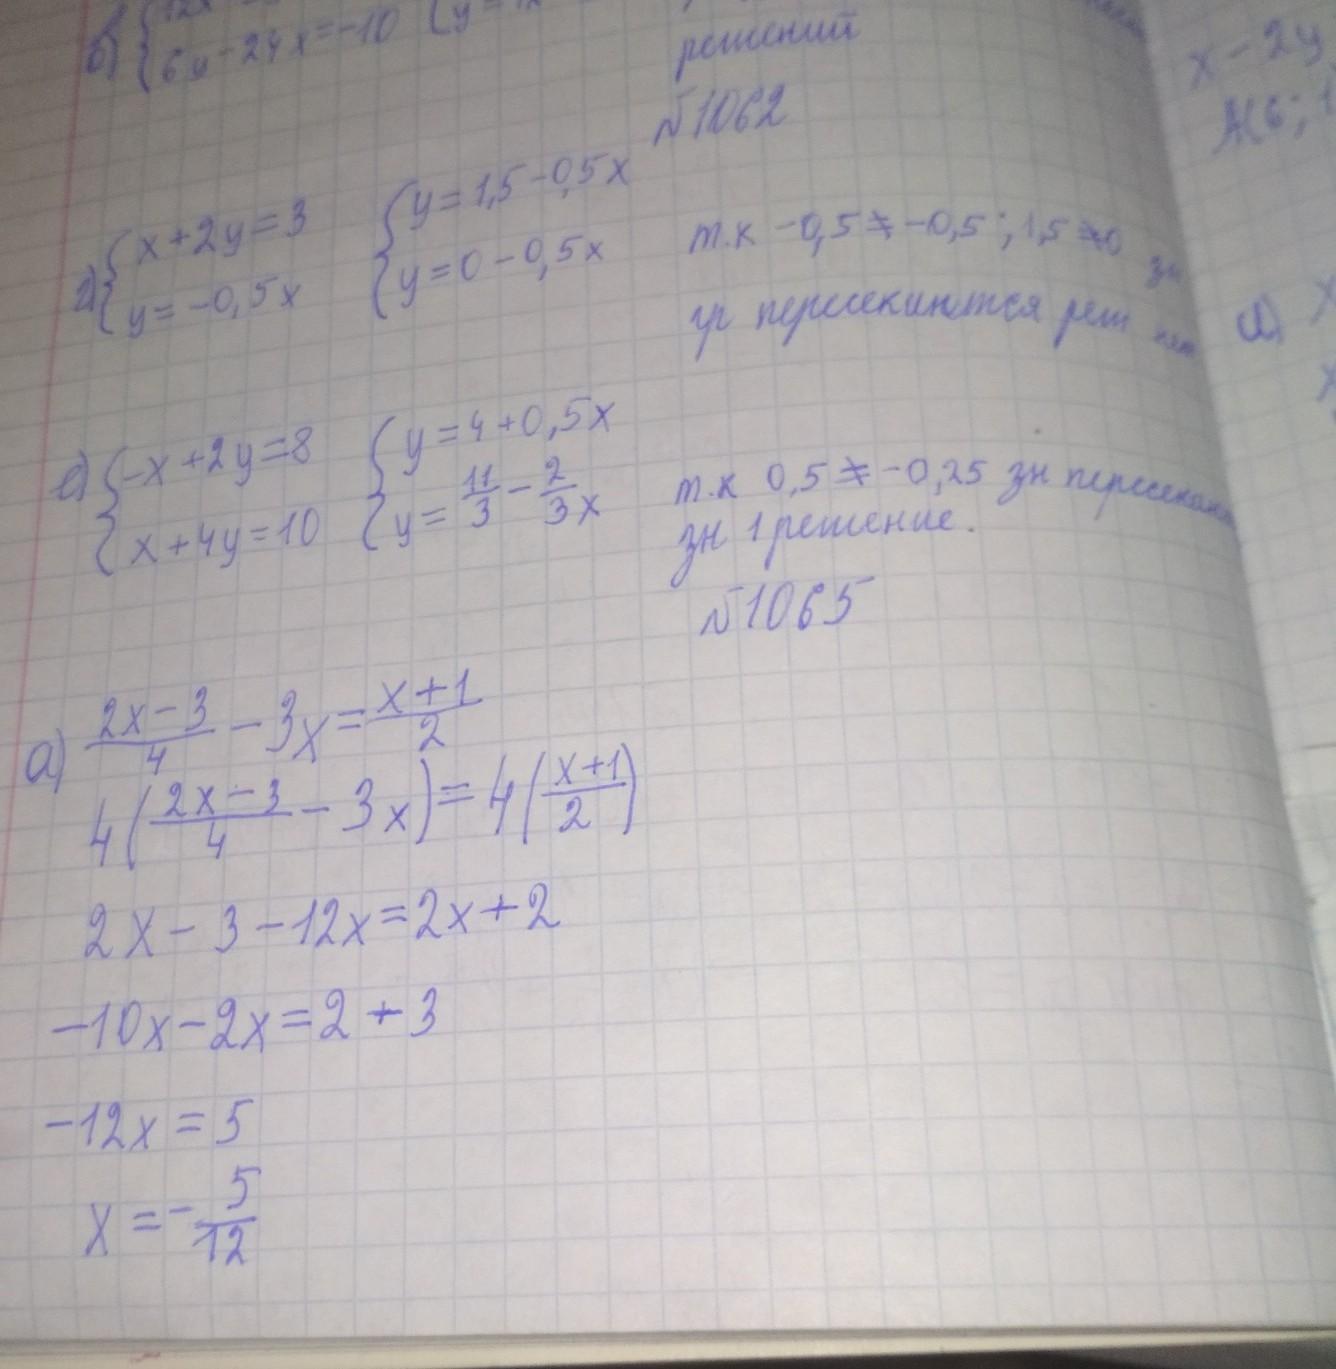 б) 12x
6y-24x=-10 y=12
решений
№1062
x+2y=3 y=1,5-0,5x
y=-0,5x y=0-0,5x
т.к -0,5≠-0,5; 1,5≠0 зн
гр пересекаются реш нет
-x+2y=8 y=4+0,5x
x+4y=10 y=11/3-2/3x
т.к 0,5≠-0,25 зн
зн 1 решение.
№1065
а) (2x-3)/4-3x=(x+1)/2
4((2x-3)/4-3x)=4((x+1)/2)
2x-3-12x=2x+2
-10x-2x=2+3
-12x=5
x=-5/12
x-2y